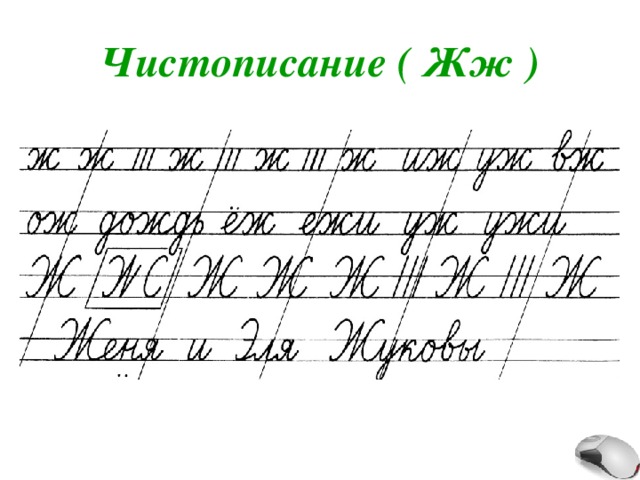 Чистописание ( Жж )
ж ж ж ж ж иж уж вж
ож дождь ёж ежи уж ужи
Ж Ж Ж Ж Ж Ж
Женя и Эля Жуковы